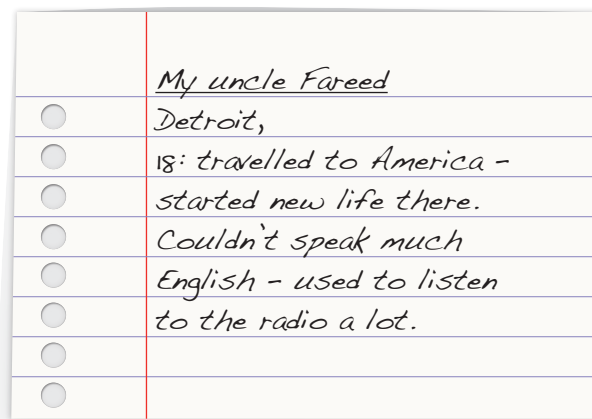 My uncle Fareed
Detroit,
18: travelled to America -
started new life there.
Couldn't speak much
English - used to listen
to the radio a lot.